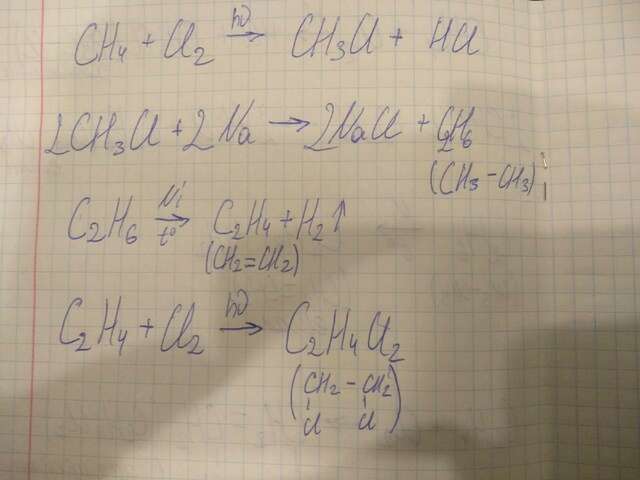 CH₄ + Cl₂ hν→ CH₃Cl + HCl
2CH₃Cl + 2Na → 2NaCl + C₂H₆
(CH₃ – CH₃);
C₂H₆ Ni→t° C₂H₄ + H₂↑
(CH₂=CH₂)
C₂H₄ + Cl₂ hν→ C₂H₄Cl₂
(CH₂ – CH₂)
Cl Cl